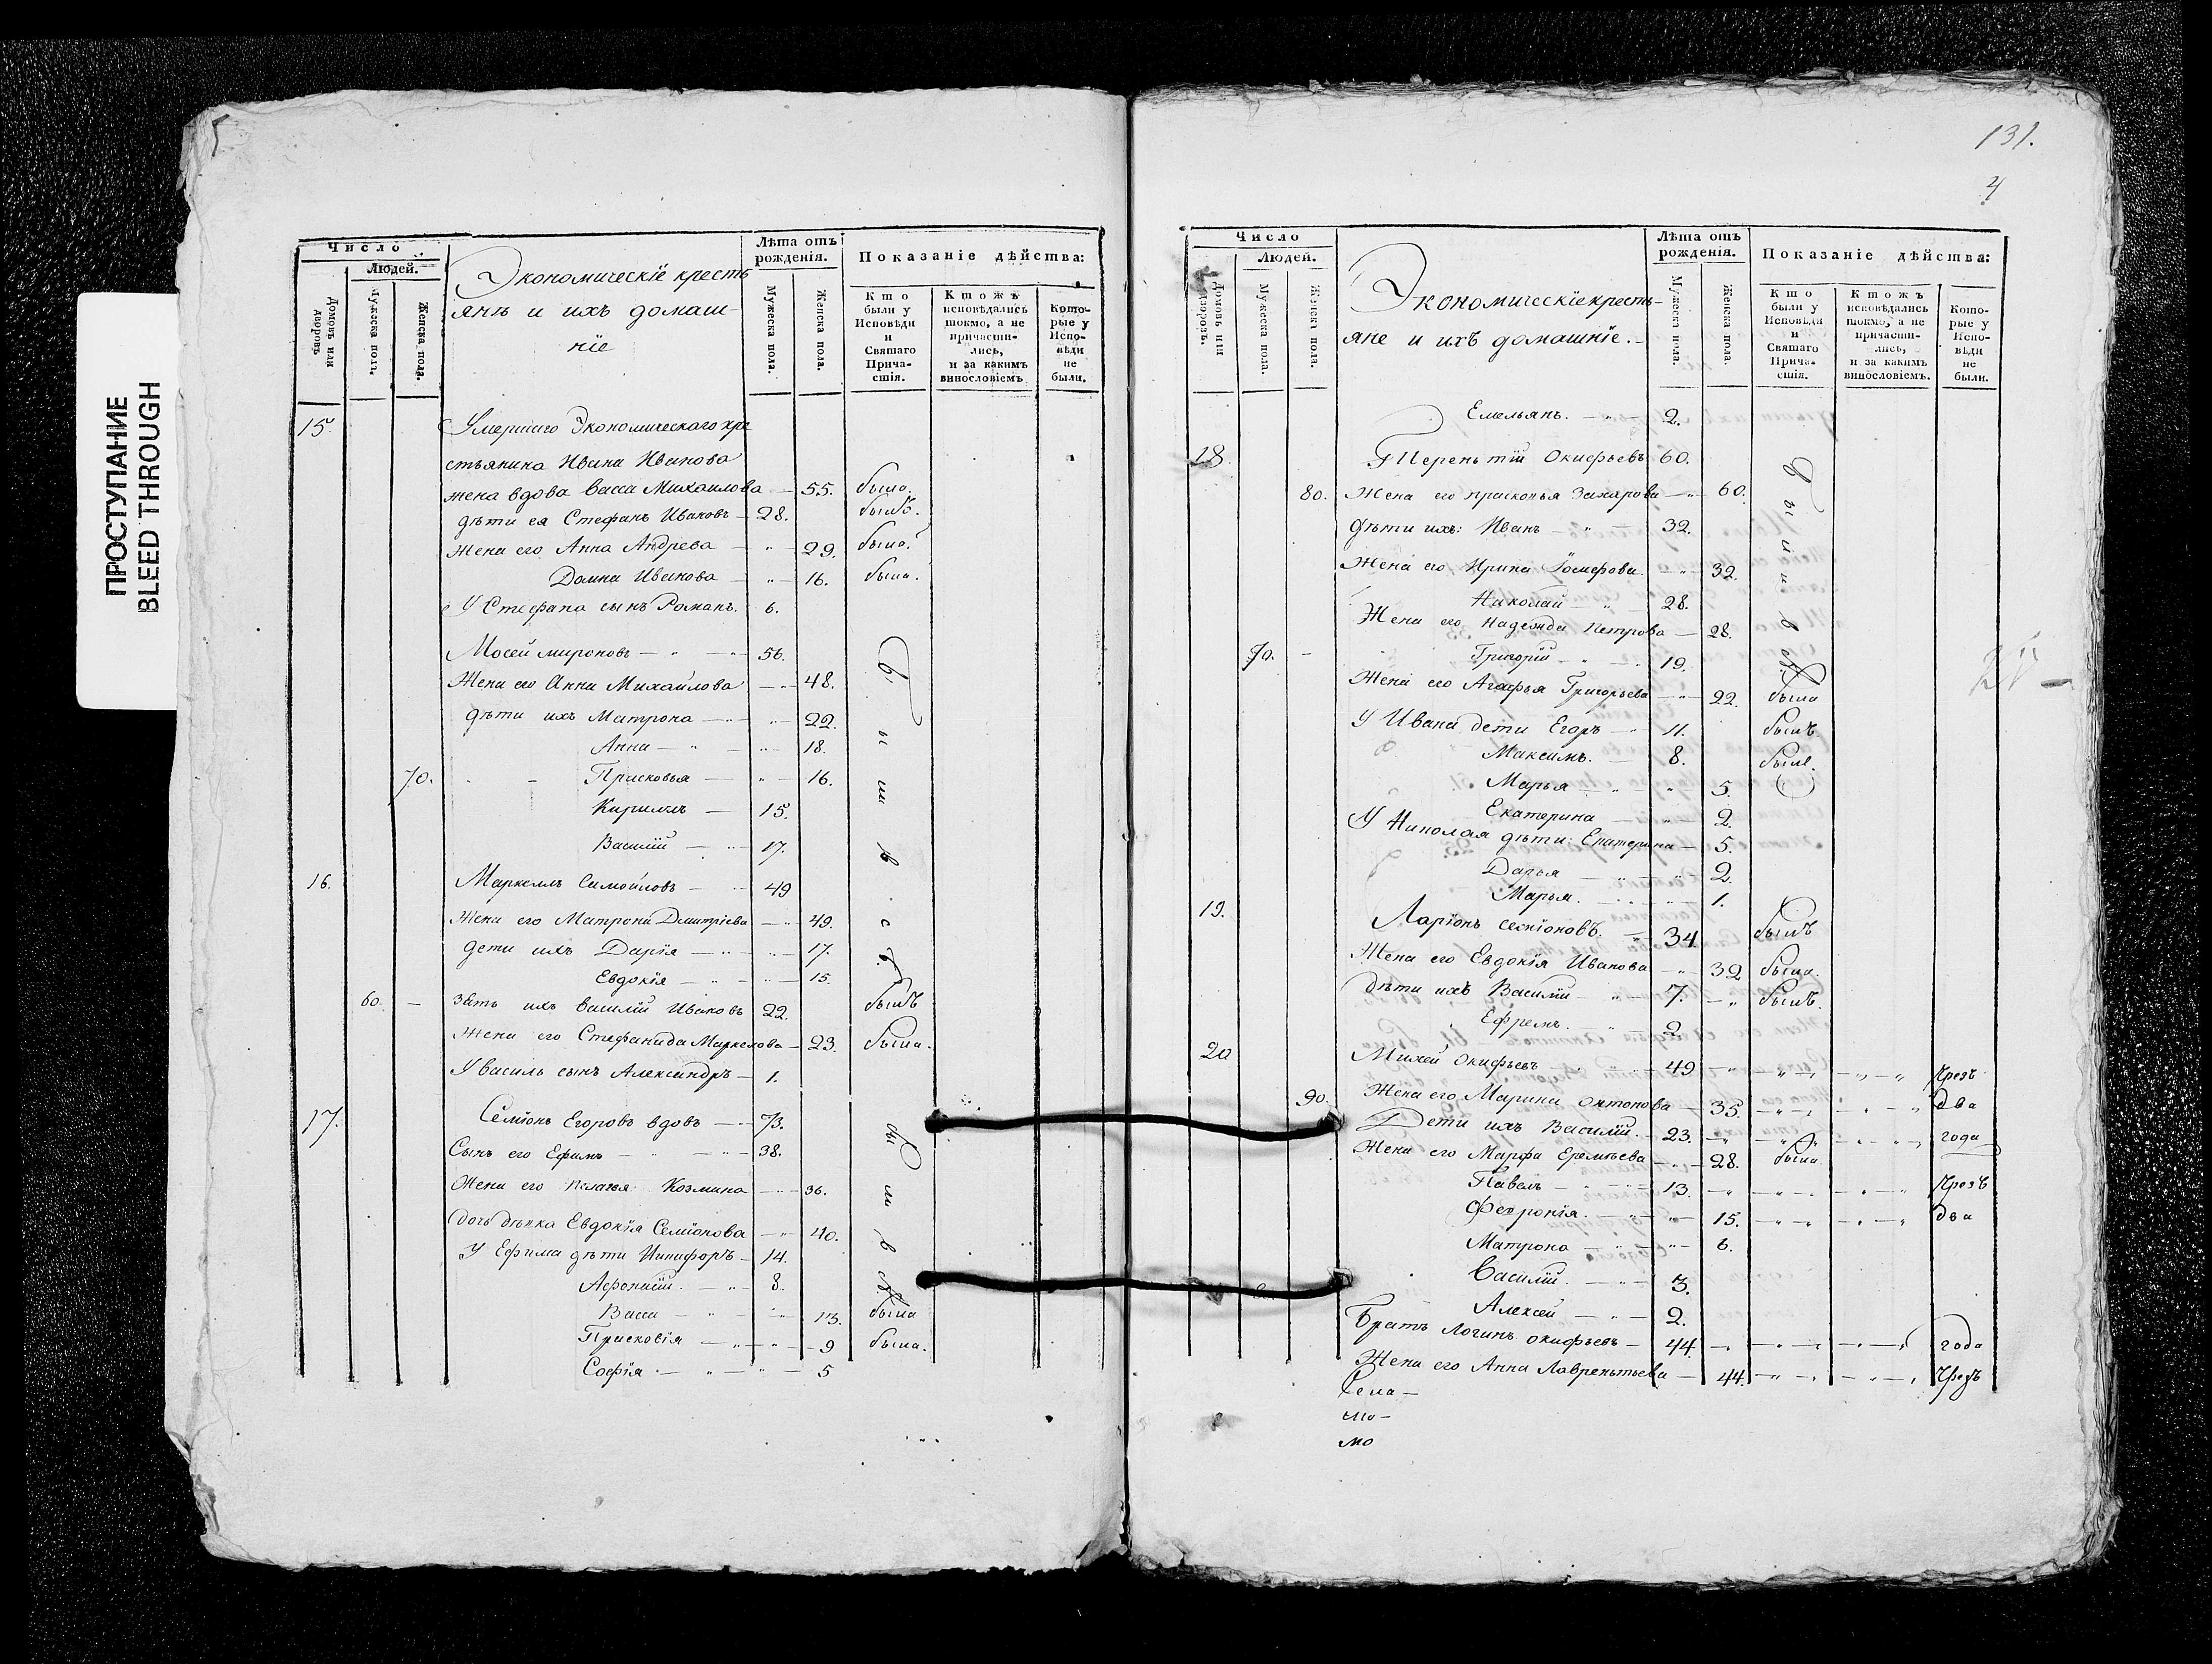 ПРОСТУПАНИЕ
BLEED THROUGH
Число
Людей.
Домовъ или дворовъ
Мужеска полъ.
Женска пола.
Экономическіе кресть
янѣ и ихъ домаш-
ніе
Лѣта отъ
рожденія.
Мужеска пола.
Женска пола.
Показаніе дѣйства:
Кто
были у
Исповѣди
и
Святаго
Прича-
стія.
Ктожъ
исповѣдались
токмо, а не
причасти-
лись,
и за какимъ
винословіемъ
Кото-
рые у
Испо-
вѣди
не
были.
15. Умершаго Экономическаго кре
стьянина Ивана Иванова
жена вдова Васса Михаилова — 55. была.
дѣти ея Стефанъ Ивановъ — 28. былъ.
Жена его Анна Андрева — " — 29. была.
Домна Иванова — " — 16. была.
У Стефана сынъ Романъ. 6.
Мосей мироновъ — " — 56.
Жена его Анна Михайлова — " — 48.
дѣти ихъ Матрона — " — 22.
Анна — " — 18.
70. Прасковья — " — 16.
Кирилъ — 15.
Василій — 17.
были в. с. т.
16. Маркеллъ Самойловъ — 49
Жена его Матрона Дмитріева — " — 49.
дети ихъ Дарія — " — 17.
Евдокія — " — 15.
60. — зять ихъ василій Ивановъ 22. былъ
Жена его Стефанида Маркелова — 23. была.
У василь сынъ Александръ — 1.
17. Семіонъ Егоровъ вдовъ — 73.
Сынъ его Ефимъ — " — 38.
Жена его Пелагея Козмина — 36.
дочь дѣвка Евдокія Семіонова — " — 40.
У Ефима дѣти Никифоръ — 14.
Афонасій. — " — 8.
были в
Васса — " — 13. была
Прасковія — " — 9 была.
Софія. — " — " — 5
131.
4
Число
Людей.
Домовъ или дворовъ.
Мужеска пола.
Женска пола.
Экономическіе кресть-
яне и ихъ домашніе.
Лѣта отъ
рожденія.
Мужеска пола.
Женска пола.
Показаніе дѣйства:
Кто
были у
Исповѣди
и
Святаго
Прича-
стія.
Ктожъ
исповѣдались
токмо, а не
причасти-
лись,
и за какимъ
винословіемъ.
Кото-
рые у
Испо-
вѣди
не
были.
Емельянъ. — " — 2.
18. Терентій Окифьевъ 60.
80. Жена его прасковья Захарова — " — 60.
дѣти ихъ: Иванъ — " — 32.
Жена его Ирина Іосифова. — " — 32.
Николай — " — 28.
Жена его Надежда Петрова — 28.
70. — Григорій — " — 19.
были в
Жена его Агафья Григорьева — " — 22. была
У Ивана дети Егоръ — " 11. былъ
Максимъ. — 8. былъ.
Марья — " — " 5.
Екатерина — " — 2.
У Николая дѣти: Екатерина — 5.
Дарья — " — 2.
Марья. — " — 1.
19. Ларіонъ семіоновъ. — 34 былъ
Жена его Евдокія Иванова — " — 32 была.
дѣти ихъ Василій — " — 7. — " былъ.
Ефремъ. " 2
20 Михей Окифьевъ — " — 49 — " — Чрезъ
90. Жена его Марина Онтонова — 35. — " — два
Дети ихъ Василій. — 23. — " — года
Жена его Марфа Еремѣева — " — 28. была
Павелъ — " — 13. — " — Чрезъ
Февронія. — " — 15. — " — два
Матрона — " — 6.
Василій. — " — 3.
Алексей — " — 2.
Братъ Логинъ Окифьевъ — 44. — " — года
Жена его Анна Лаврентьева — 44. — " — Чрезъ
Села —
мо